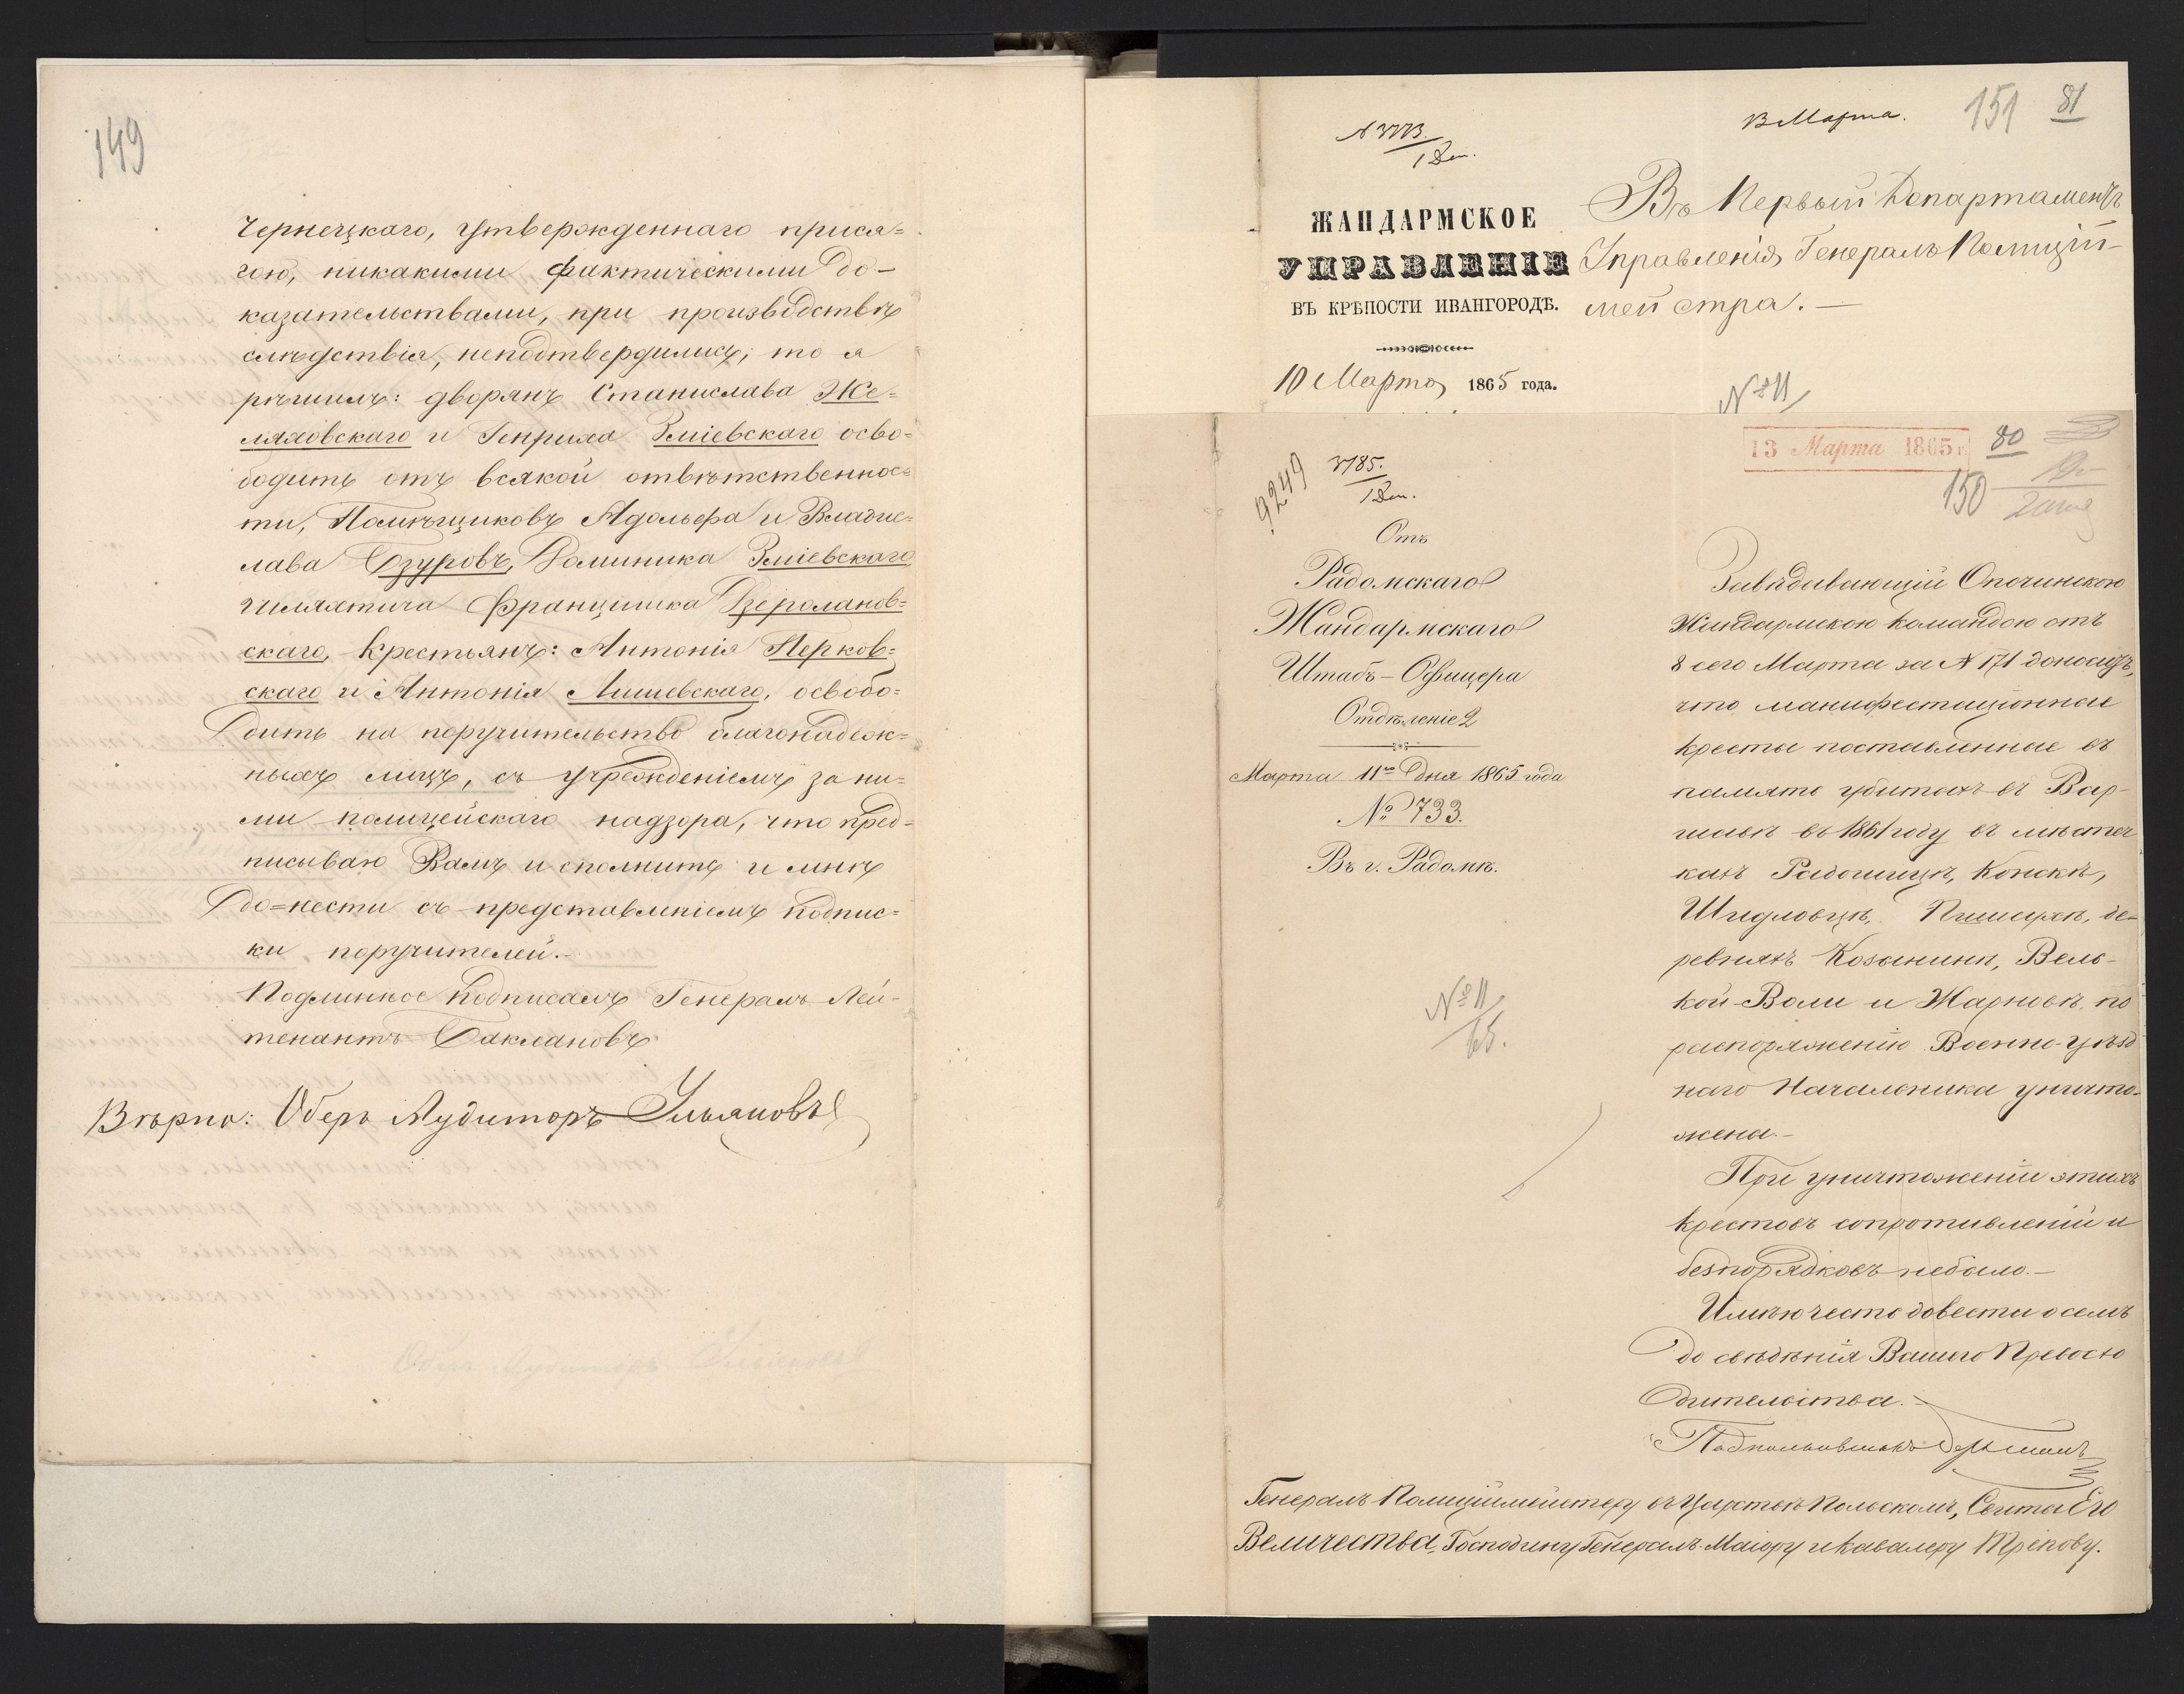 149
Чернецкаго, утвержденнаго прися=
гою, никакими фактическими до-
казательствами, при производствѣ
слѣдствія, неподтвердились; то я
рѣшилъ: дворянъ Станислава Же=
ляховскаго и Генриха Зміевскаго осво=
бодить отъ всякой отвѣтственнос=
ти, Помѣщиковъ Адольфа и Владис=
лава Дзуровъ, Доминика Зміевскаго
шляхтича Францишка Дзеролановс=
скаго, крестьянъ: Антонія Перков=
скаго и Антонія Лишевскаго, освобо=
дить на поручительство благонадеж=
ныхъ лицъ, съ учрежденіемъ за ни=
ми полицейскаго надзора, что пред=
писываю Вамъ исполнить и мнѣ
до=нести съ представленіемъ подпис=
ки поручителей.-
Подлинное подписалъ Генералъ-Лей-
тенантъ Баклановъ
Вѣрно: Оберъ Аудиторъ Ульяновъ
13 Марта.
151 81
1 Деп.
ЖАНДАРМСКОЕ
УПРАВЛЕНІЕ
ВЪ КРѢПОСТИ ИВАНГОРОДѢ.
10 Марта 1865 года.
Въ Первый Департаментъ
Управленія Генералъ Полицій-
мейстра.-
№ 11
13 Марта 1865 г.
80
150
9249
3185.
1 Деп.
Отъ
Радомскаго
Жандармскаго
Штабъ-Офицера
Отдѣленіе 2
Марта 11го дня 1865 года
№ 733.
Въ г. Радомѣ.
№ 11
65.
Завѣдывающій Опочинскою
Жандармскою командою отъ
8 сего Марта за № 171 доноситъ,
что манифестаціонные
кресты поставленные въ
память убитыхъ въ Вар-
шавѣ въ 1861 году въ мѣстеч
кахъ Радошицѣ, Конскѣ,
Шидловцѣ, де-
ревняхъ Вель-
кой-Воли и Жарновѣ, по
распоряженію Военно-уѣзд
наго Начальника уничто-
жены.-
При уничтоженіи этихъ
крестовъ сопротивленій и
безпорядковъ небыло.-
Имѣю честь довести о семъ
до свѣдѣнія Вашего Превосхо
дительства.-
Подполковникъ
Генералъ Полиціймейстеру въ Царствѣ Польскомъ, Свиты Его
Величества, Господину Генералъ-Маіору и Кавалеру Трепову.